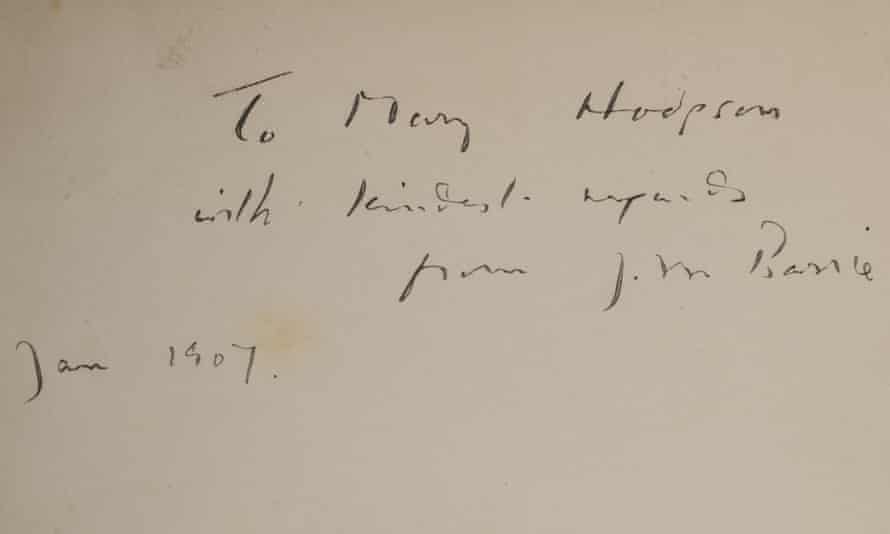 To Mary Hodgson
with kindest regards
from J. M Barrie
Jan 1907.